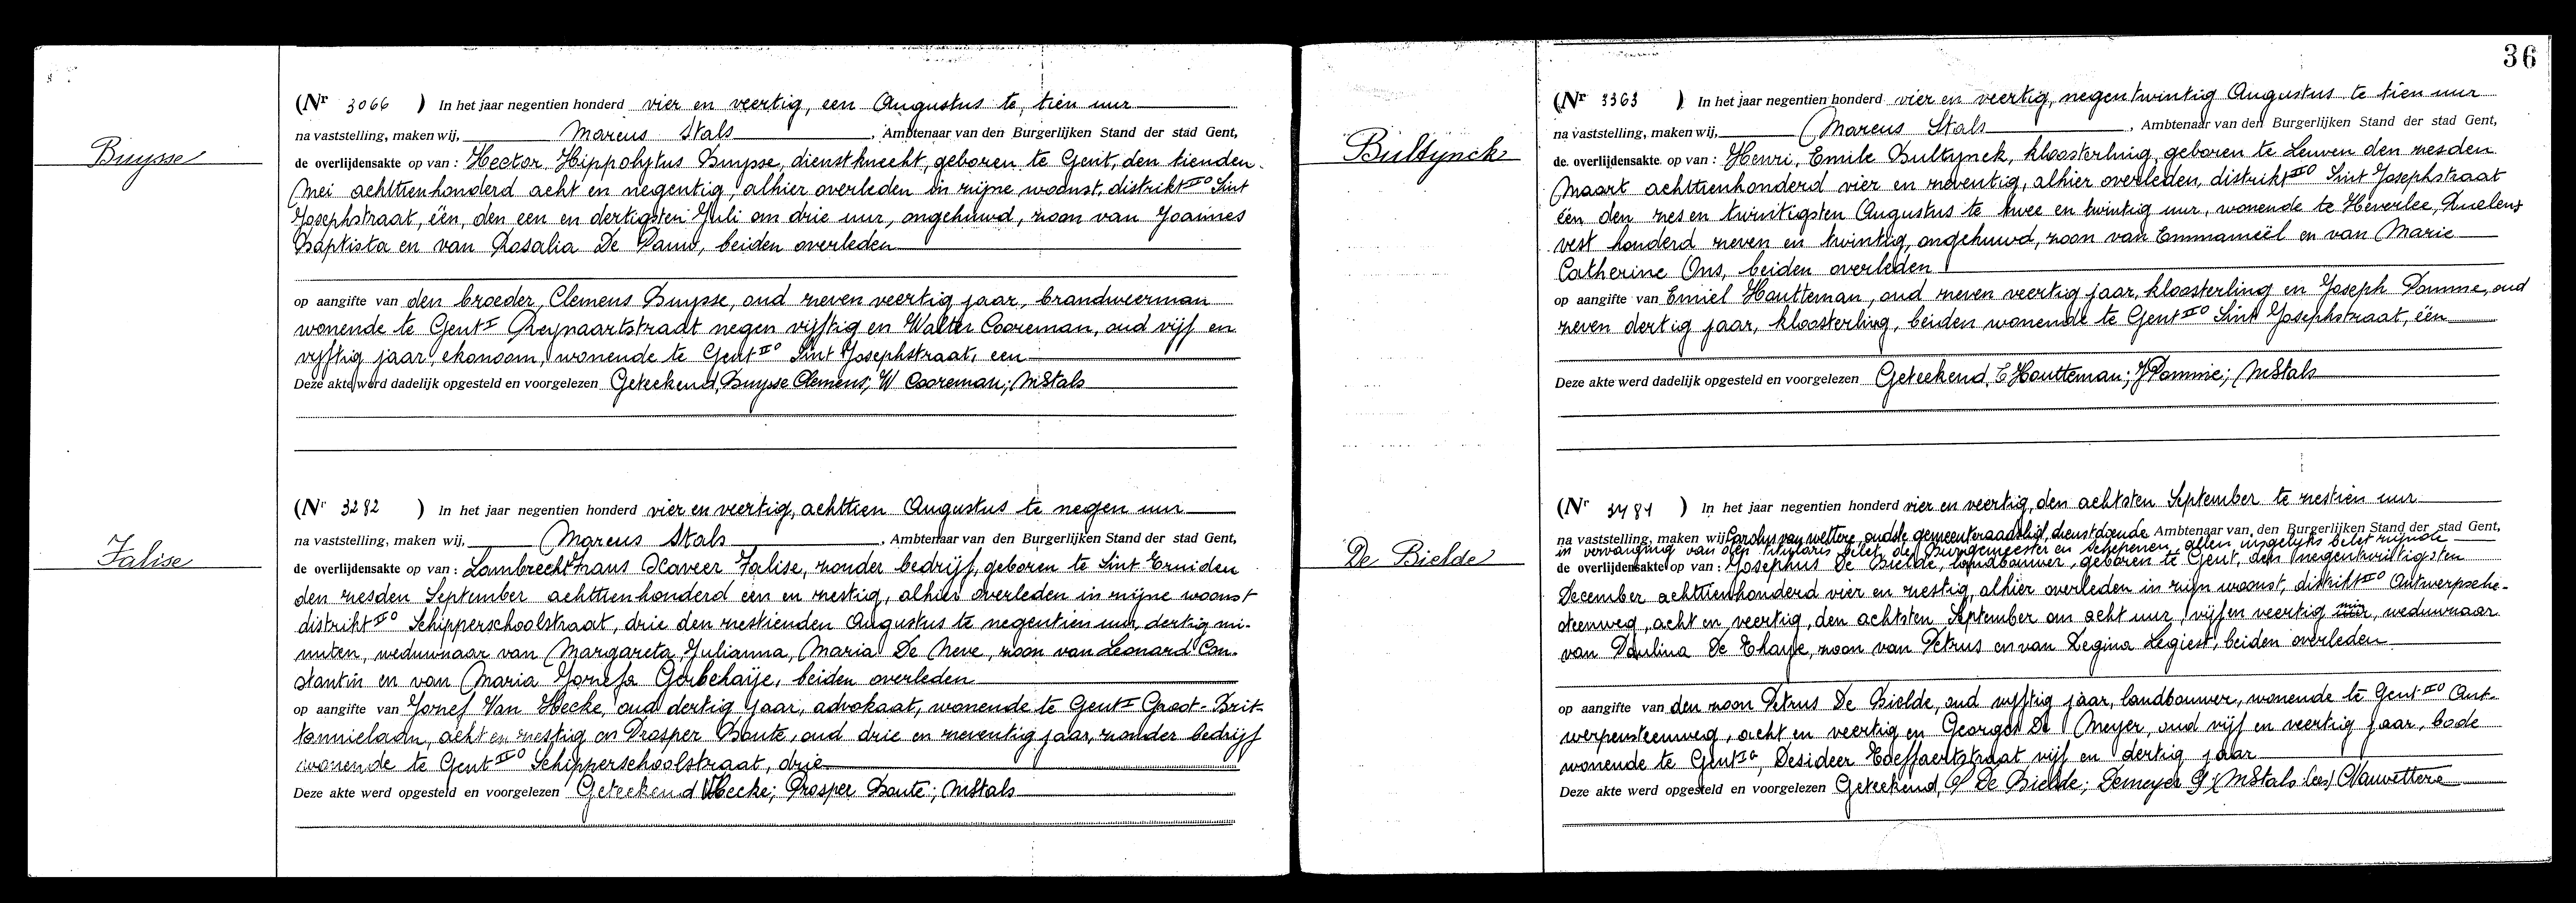 Buysse
(Nr 3066 ) In het jaar negentien honderd vier en veertig, een Augustus te tien uur
na vaststelling, maken wij, Marcus Stals, Ambtenaar van den Burgerlijken Stand der stad Gent,
de overlijdensakte op van : Hector Hippolytus Buysse, dienstknecht, geboren te Gent, den tienden
Mei achttienhonderd acht en negentig, alhier overleden in zijne woonst, distrikt IIº Sint
Josephstraat, één, den een en dertigsten Juli om drie uur, ongehuwd, zoon van Joannes
Baptista en van Rosalia De Pauw, beiden overleden
op aangifte van den broeder, Clemens Buysse, oud zeven veertig jaar, brandweerman
wonende te Gent I Reynaartstraat negen vijftig en Walter Cooreman, oud vijf en
vijftig jaar, ekonoom, wonende te Gent IIº Sint Josephstraat, een
Deze akte werd dadelijk opgesteld en voorgelezen Geteekend, Buysse Clemens; W Cooreman; MStals
Falise
(Nr 3282 ) In het jaar negentien honderd vier en veertig, achttien Augustus te negen uur
na vaststelling, maken wij, Marcus Stals, Ambtenaar van den Burgerlijken Stand der stad Gent,
de overlijdensakte op van : Lambrecht Frans Xaveer Falise, zonder bedrijf, geboren te Sint Truiden
den zesden September achttienhonderd een en zestig, alhier overleden in zijne woonst
distrikt IIº Schipperschoolstraat, drie den zestienden Augustus te negentien uur dertig mi-
nuten, weduwnaar van Margareta, Julianna, Maria De Neve, zoon van Leonard Con-
stantin en van Maria Jozefa Gerbehaije, beiden overleden
op aangifte van Jozef Van Hecke, oud dertig jaar, advokaat, wonende te Gent I Groot-Brit-
tannielaan, acht en zestig en Prosper Bonte, oud drie en zeventig jaar, zonder bedrijf
wonende te Gent IIº Schipperschoolstraat, drie
Deze akte werd opgesteld en voorgelezen Geteekend VHecke; Prosper Bonte; MStals
36
Bultynck
(Nr 3363 ) In het jaar negentien honderd vier en veertig, negen twintig Augustus te tien uur
na vaststelling, maken wij, Marcus Stals, Ambtenaar van den Burgerlijken Stand der stad Gent,
de overlijdensakte op van : Henri, Emile Bultynck, kloosterling, geboren te Leuven den zesden
Maart achttienhonderd vier en zeventig, alhier overleden, distrikt IIº Sint Josephstraat
één den zes en twintigsten Augustus te twee en twintig uur, wonende te Heverlee, Ruelens
vest honderd zeven en twintig, ongehuwd, zoon van Emmanuël en van Marie
Catherine Ons, beiden overleden
op aangifte van Emiel Houtteman, oud zeven veertig jaar, kloosterling en Joseph Pomme, oud
zeven dertig jaar, kloosterling, beiden wonende te Gent IIº Sint Josephstraat, één
Deze akte werd dadelijk opgesteld en voorgelezen Geteekend, E Houtteman; J Pomme; MStals
De Bielde
(Nr 3481 ) In het jaar negentien honderd vier en veertig, den achtsten September te zestien uur
na vaststelling, maken wij Carolus van wettere oudste gemeenteraadslid, dienstdoende Ambtenaar van den Burgerlijken Stand der stad Gent,
in vervanging van den titularis belet, de Burgemeester en Schepenen allen insgelijks belet zijnde
de overlijdensakte op van : Josephus De Bielde, landbouwer, geboren te Gent, den negentwintigsten
December achttienhonderd vier en zestig, alhier overleden in zijn woonst, distrikt IIº Antwerpsche-
steenweg, acht en veertig, den achtsten September om acht uur, vijf en veertig min, weduwnaar
van Paulina De Thaye, zoon van Petrus en van Regina Legiest, beiden overleden
op aangifte van den zoon Petrus De Bielde, oud vijftig jaar, landbouwer, wonende te Gent IIº Ant-
werpensteenweg, acht en veertig en Georges De Meyer, oud vijf en veertig jaar, bode
wonende te Gent, Desideer Toeffaertstraat vijf en dertig jaar
Deze akte werd opgesteld en voorgelezen Geteekend, P De Bielde; Demeyer G; (MStals